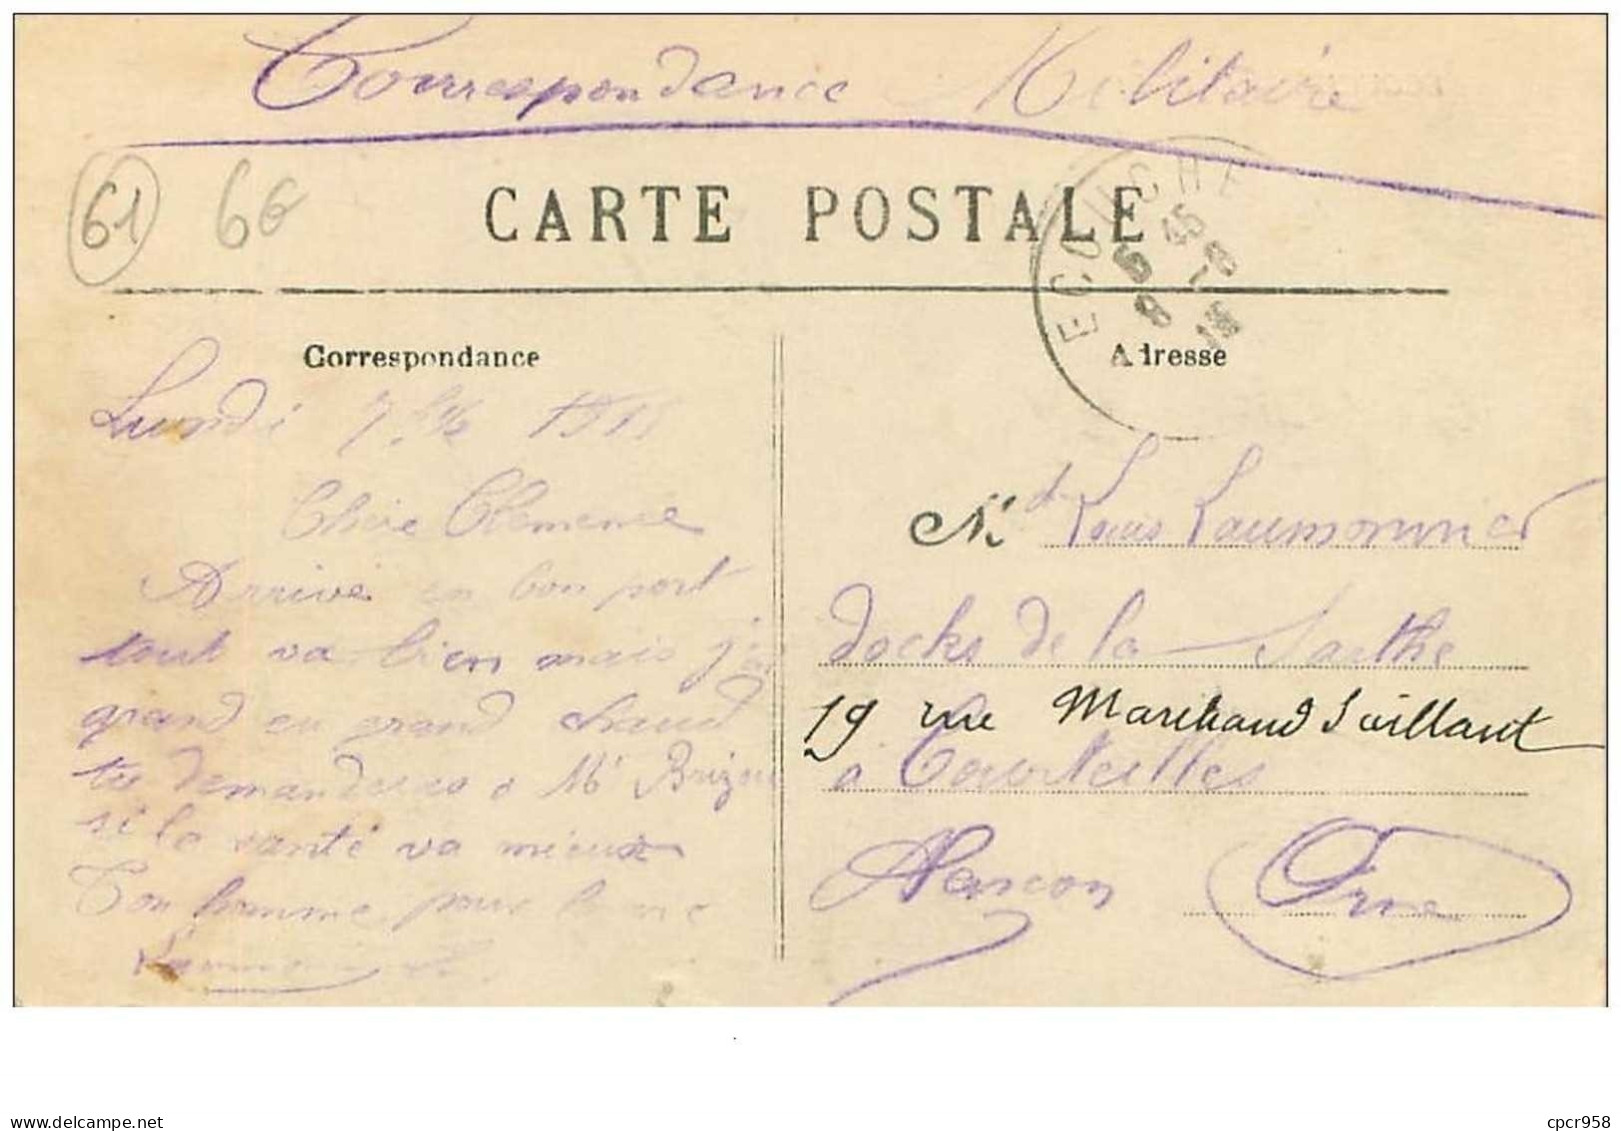 Correspondance Militaire
61 6€
CARTE POSTALE
ECOUCHE
Correspondance
Adresse
Lundi 7
Chère Clemence
Arrivé en bon port
tout va bien mais j'ai
grand en grand chaud
tu demanderas a Mr
si la santé va mieux
Ton homme pour la vie
Md Louis Laumonnier
docks de la Sarthe
19 rue Marchand Saillant
a Courteilles
Alencon Orne
delcampe.net
cpcr958